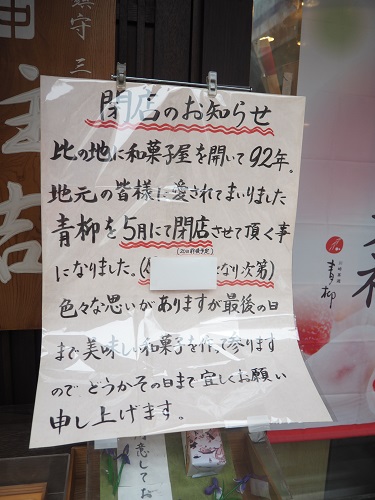 鎮守 三
閉店のお知らせ
此の地に和菓子屋を開いて92年。
地元の皆様に愛されてまいりました
青柳を5月にて閉店させて頂く事
になりました。( なり次第)
色々な思いがありますが最後の日
まで美味しい和菓子を作って参ります
ので どうかその日まで宜しくお願い
申し上げます。
青柳